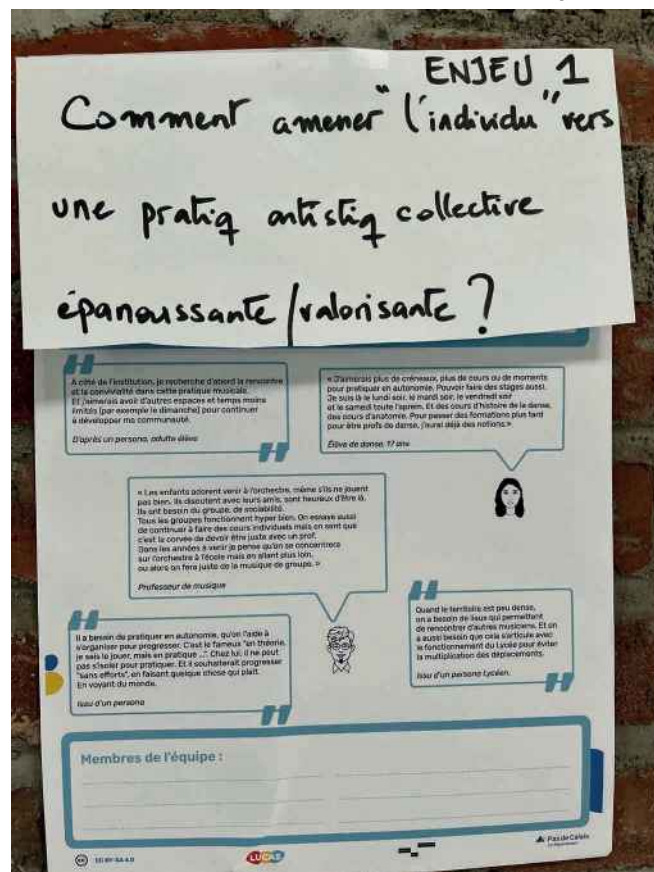 ENJEU 1
Comment amener "l'individu" vers
une pratiq artistiq collective
épanouissante/valorisante ?
À côté de l'institution, je recherche d'abord la rencontre
et la convivialité dans cette pratique musicale.
Et j'aimerais avoir d'autres espaces et temps moins
limités (par exemple le dimanche) pour continuer
à développer ma communauté.
D'après un persona, adulte élève
« J'aimerais plus de créneaux, plus de cours ou de moments
pour pratiquer en autonomie. Pouvoir faire des stages aussi.
Je suis là le lundi soir, le mardi soir, le vendredi soir
et le samedi toute l'aprem. Et des cours d'histoire de la danse,
des cours d'anatomie. Pour passer des formations plus tard
pour être profs de danse, j'aurai déjà des notions.»
Élève de danse, 17 ans
« Les enfants adorent venir à l'orchestre, même s'ils ne jouent
pas bien. Ils discutent avec leurs amis, sont heureux d'être là.
Ils ont besoin du groupe, de sociabilité.
Tous les groupes fonctionnent hyper bien. On essaye aussi
de continuer à faire des cours individuels mais on sent que
c'est la corvée de devoir être juste avec un prof.
Dans les années à venir je pense qu'on se concentrera
sur l'orchestre à l'école mais en allant plus loin,
ou alors on fera juste de la musique de groupe. »
Professeur de musique
Il a besoin de pratiquer en autonomie, qu'on l'aide à
s'organiser pour progresser. C'est le fameux "en théorie,
je sais le jouer, mais en pratique ...". Chez lui, il ne peut
pas s'isoler pour pratiquer. Et il souhaiterait progresser
"sans efforts", en faisant quelque chose qui plaît.
En voyant du monde.
Issu d'un persona
Quand le territoire est peu dense,
on a besoin de lieux qui permettent
de rencontrer d'autres musiciens. Et on
a aussi besoin que cela s'articule avec
le fonctionnement du Lycée pour éviter
la multiplication des déplacements.
Issu d'un persona Lycéen.
Membres de l'équipe :
CC BY-SA 4.0
LUCAS
Pas-de-Calais
Le Département